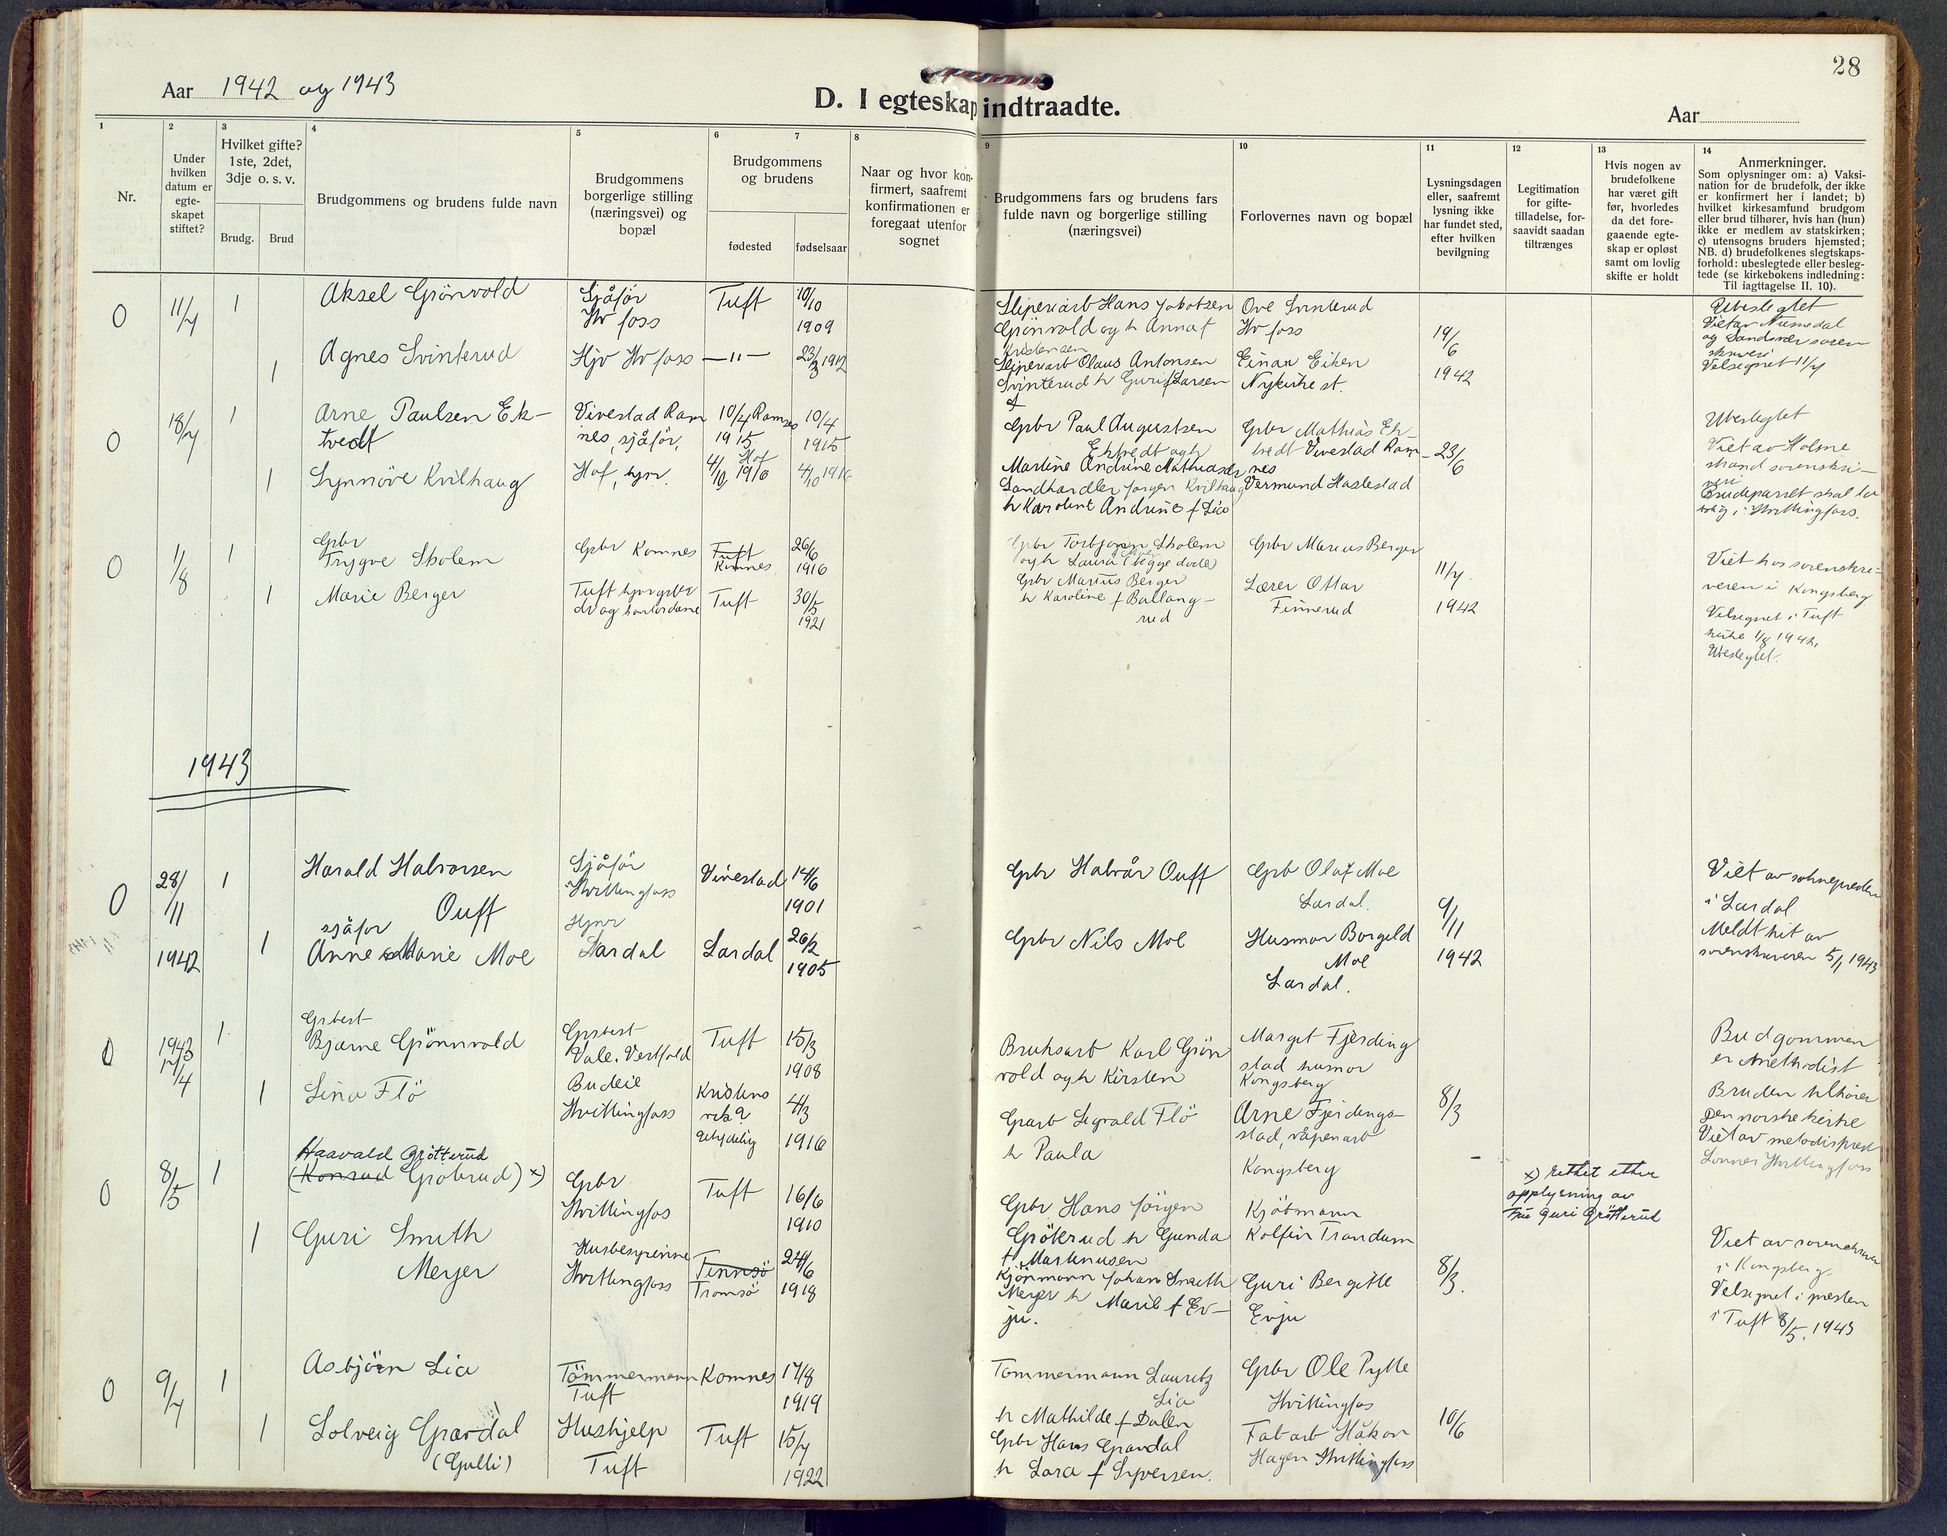 28
Aar 1942 og 1943
D. I egteskap indtraadte.
Aar
1
2
3
4
5
6
7
8
9
10
11
12
13
14
Nr.
Under
hvilken
datum er
egte-
skapet
stiftet?
Hvilket gifte?
1ste, 2det,
3dje o. s. v.
Brudg.
Brud
Brudgommens og brudens fulde navn
Brudgommens
borgerlige stilling
(næringsvei) og
bopæl
Brudgommens
og brudens
fødested
fødselsaar
Naar og hvor kon-
firmert, saafremt
konfirmationen er
foregaat utenfor
sognet
Brudgommens fars og brudens fars
fulde navn og borgerlige stilling
(næringsvei)
Forlovernes navn og bopæl
Lysningsdagen
eller, saafremt
lysning ikke
har fundet sted,
efter hvilken
bevilgning
Legitimation
for gifte-
tilladelse, for-
saavidt saadan
tiltrænges
Hvis nogen av
brudefolkene
har været gift
før, hvorledes
da det fore-
gaaende egte-
skap er opløst
samt om lovlig
skifte er holdt
Anmerkninger.
Som oplysninger om: a) Vaksi-
nation for de brudefolk, der ikke
er konfirmert her i landet; b)
hvilket kirkesamfund brudgom
eller brud tilhører, hvis han (hun)
ikke er medlem av statskirken;
c) utensogns bruders hjemsted;
NB. d) brudefolkenes slegtskaps-
forhold: ubeslegtede eller besleg-
tede (se kirkebokens indledning:
Til iagttagelse II. 10).
0 11/7 1 Aksel Grönvold Sjåfør Hv foss Tuft 10/10 1909
Sliperiarb Hans Jakobsen
Grönvold og h Anna f
Kristensen
Ove Svinterud
Hv foss
19/6 1942
Ubeslegtet
Viet av Numedal
og Sandsvær soren
skriveri
Velsignet 11/7
1 Agnes Svinterud Hjv Hv foss —"— 23/3 1912
Sliperiarb Olaus Antonsen
Svinterud h Guri f Larsen
Einar Eiken
Nykirke st.
0 18/7 1 Arne Paulsen Ek-
tvedt
Vivestad Ram
nes, sjåför,
10/4 Ramnes
1915
10/4
1915
Gbr Paul Augustsen
Ektvedt og h
Martine Andrine Mathiasdr
Gbr Mathias Ek-
tvedt Vivestad Ram-
nes
23/6
Ubeslegtet
Viet av Holme
strand sorenskri-
veri
Brudeparret skal bo
i Hvittingfoss.
1 Synnöve Kvilhaug Hof, hjv. 4/10 1916 Hof 4/10 1916
Landhandler Jørgen Kvilhaug
h Karoline Andrine f Lia
Vermund Haslestad
0 1/8 1 Gbr
Trygve Skolem
Gbr Komnes
Tuft
Komnes
26/6
1916
Gbr Torbjørn Skolem
og h Laura (begge døde)
Gbr Marius Berger
11/7
1942
Viet hos sorenskri-
veren i Kongsberg
Velsignet i Tuft
kirke 1/8 1942.
Ubeslegtet.
1 Marie Berger
Tuft
Tuft
30/5
1921
Gbr Marius Berger
h Karoline f Ballang-
rud
Lærer Ottar
Finnerud
1943
0 28/11 1942 1 Harald Halvorsen
Ouff
sjåfør
Sjåför
Hvittingfoss
Vivestad 14/6
1901
Gbr Halvår Ouff
Gbr Olaf Moe
Lardal.
9/11
1942
Viet av sokneprest
i Lardal
Meldt hit av
sorenskriveren 5/1 1943
1 Anne Marie Moe
Hjvr
Lardal
Lardal
26/2
1905
Gbr Nils Moe
Husmor Borgild
Moe
Lardal.
0 1943
17/4
1 Gbbest
Bjarne Grönnvold
Gbbest
Våle. Vestfold
Tuft 15/3
1908
Bruksarb Karl Grön
vold og h Kirsten
Marget Fjerding
stad husmor
Kongsberg
8/3
Budgommen
er Methodist
Bruden tilhører
Den norske kirke
Viet av metodisprest
Hvittingfoss
1 Lina Flö
Budeie
Hvittingfoss
4/3
1916
Garb Sigvald Flö
h Paula
Arne Fjerdings-
stad, våpenarb
Kongsberg
0 8/5 1 Haavald Grötterud
(Konrad Gröterud) x)
Gbr
Hvittingfos
Tuft 16/6
1910
Gbr Hans Jørgen
Gröterud h Gunda
f Martinusen
Kjöbmann
Kolfin Trandum
8/3.
x) Rettet etter
opplysning av
Fru Guri Grötterud
Viet av sorenskriver
i Kongsberg.
Velsignet i presten
i Tuft 8/5. 1943
1 Guri Smith
Meyer
Husbestyrerinne
Hvittingfoss
Tinnsö
Tromsö
24/6
1918
Kjöpmann Johan Smith
Meyer h Marie f Ev-
ju.
Guri Bergitte
Evju
0 9/7 1 Asbjörn Lia
Tömmermann
Tuft
Komnes 17/8
1919
Tømmermann Lauritz
Lia
h Mathilde f Dalen
Gbr Ole Pytte
Hvittingfos
10/6
1 Solveig Gardal
(Gulli)
Hushjelp
Tuft
Tuft
15/7
1922
Gbr Hans Gardal
h Lara f Syversen.
Fabarb Håkon
Hagen Hvittingfoss